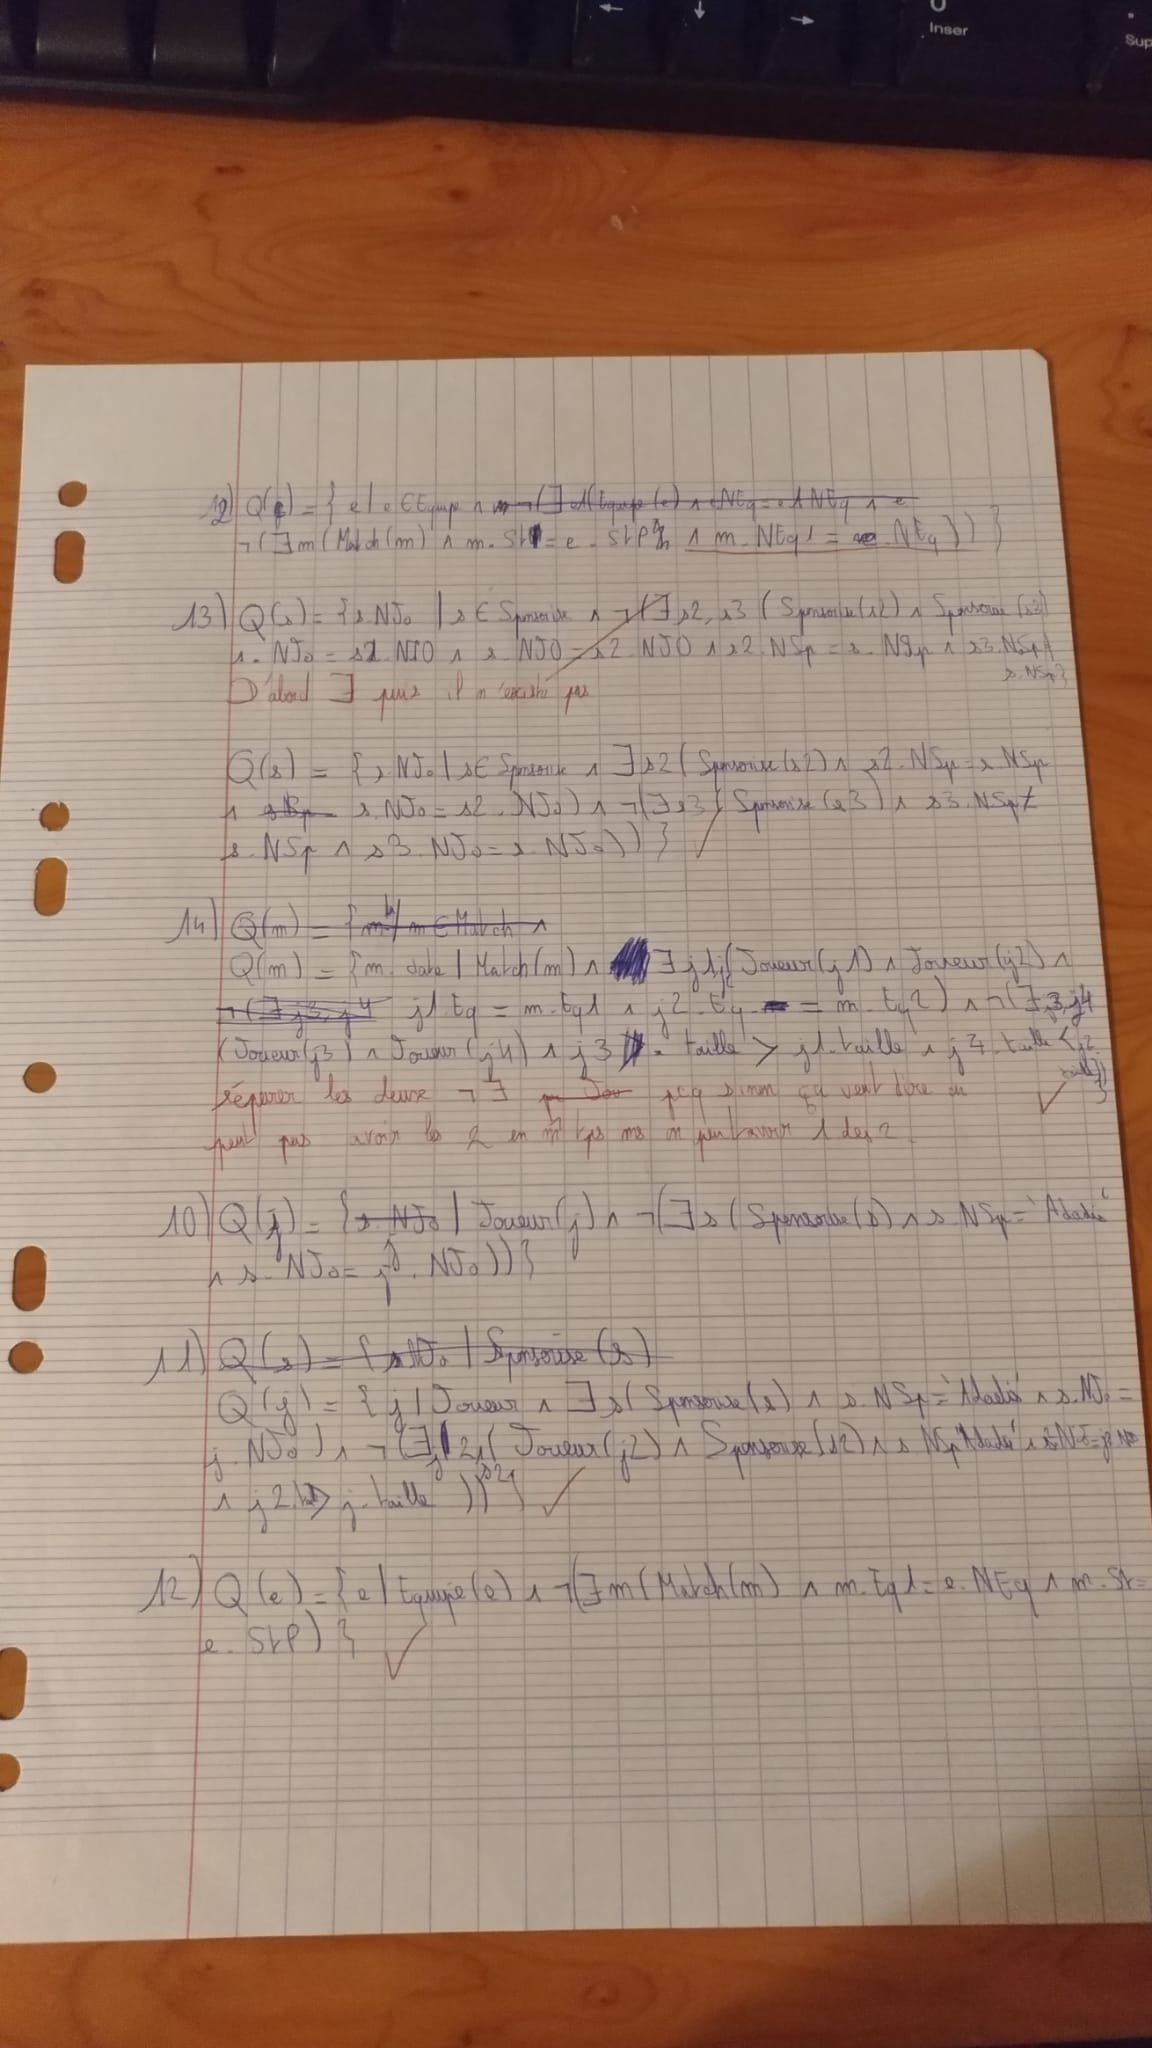 Inser
Sup
12) Q(e) = { e | e ∈ Equipe ∧ ¬(∃ e1(Equipe(e) ∧ eNEq = e1NEq ∧ e
¬(∃m(Match(m) ∧ m.St = e.StP ∧ m.NEq1 = NEq))}
13) Q(s) = {s.NJo | s ∈ Sponsorise ∧ ¬(∃ s2, s3 (Sponsorise(s2) ∧ Sponsorise(s3)
s.NJo = s2.NJO ∧ s.NJO = s2.NJO ∧ s2.NSp = s.NSp ∧ s3.NSp ≠
s.NSp}
D'abord ∃ puis il n'existe pas
Q(s) = {s.NJo | s ∈ Sponsorise ∧ ∃ s2(Sponsorise(s2) ∧ s2.NSp = s.NSp
∧ s.NJo = s2.NJo) ∧ ¬(∃ s3(Sponsorise(s3) ∧ s3.NSp ≠
s.NSp ∧ s3.NJo = s.NJo))}
14) Q(m) = {m | m ∈ Match ∧
Q(m) = {m.date | Match(m) ∧ ∃ j1,j2(Joueur(j1) ∧ Joueur(j2) ∧
¬(∃ j3, j4 j1.Eq = m.Eq1 ∧ j2.Eq = m.Eq2) ∧ ¬(∃ j3,j4
(Joueur(j3) ∧ Joueur(j4) ∧ j3.taille > j1.taille ∧ j4.taille < j2.
taille))}
séparer les deux ¬∃ pcq sinon ça veut dire on
peut pas avoir les 2 en m̂ tps ms on peut avoir 1 des 2
10) Q(j) = {s.NJo | Joueur(j) ∧ ¬(∃ s (Sponsorise(s) ∧ s.NSp = 'Adadis'
j
∧ s.NJo = j.NJo))}
11) Q(s) = {s.NJo | Sponsorise(s)
Q(j) = {j | Joueur ∧ ∃ s(Sponsorise(s) ∧ s.NSp = 'Adadis' ∧ s.NJo =
j.NJo) ∧ ¬(∃ j2,(Joueur(j2) ∧ Sponsorise(s2) ∧ s.NSp 'Adadis' ∧
s2
∧ j2 > j.taille))}
12) Q(e) = {e | Equipe(e) ∧ ¬(∃m(Match(m) ∧ m.Eq1 = e.NEq ∧ m.St =
e.StP)}